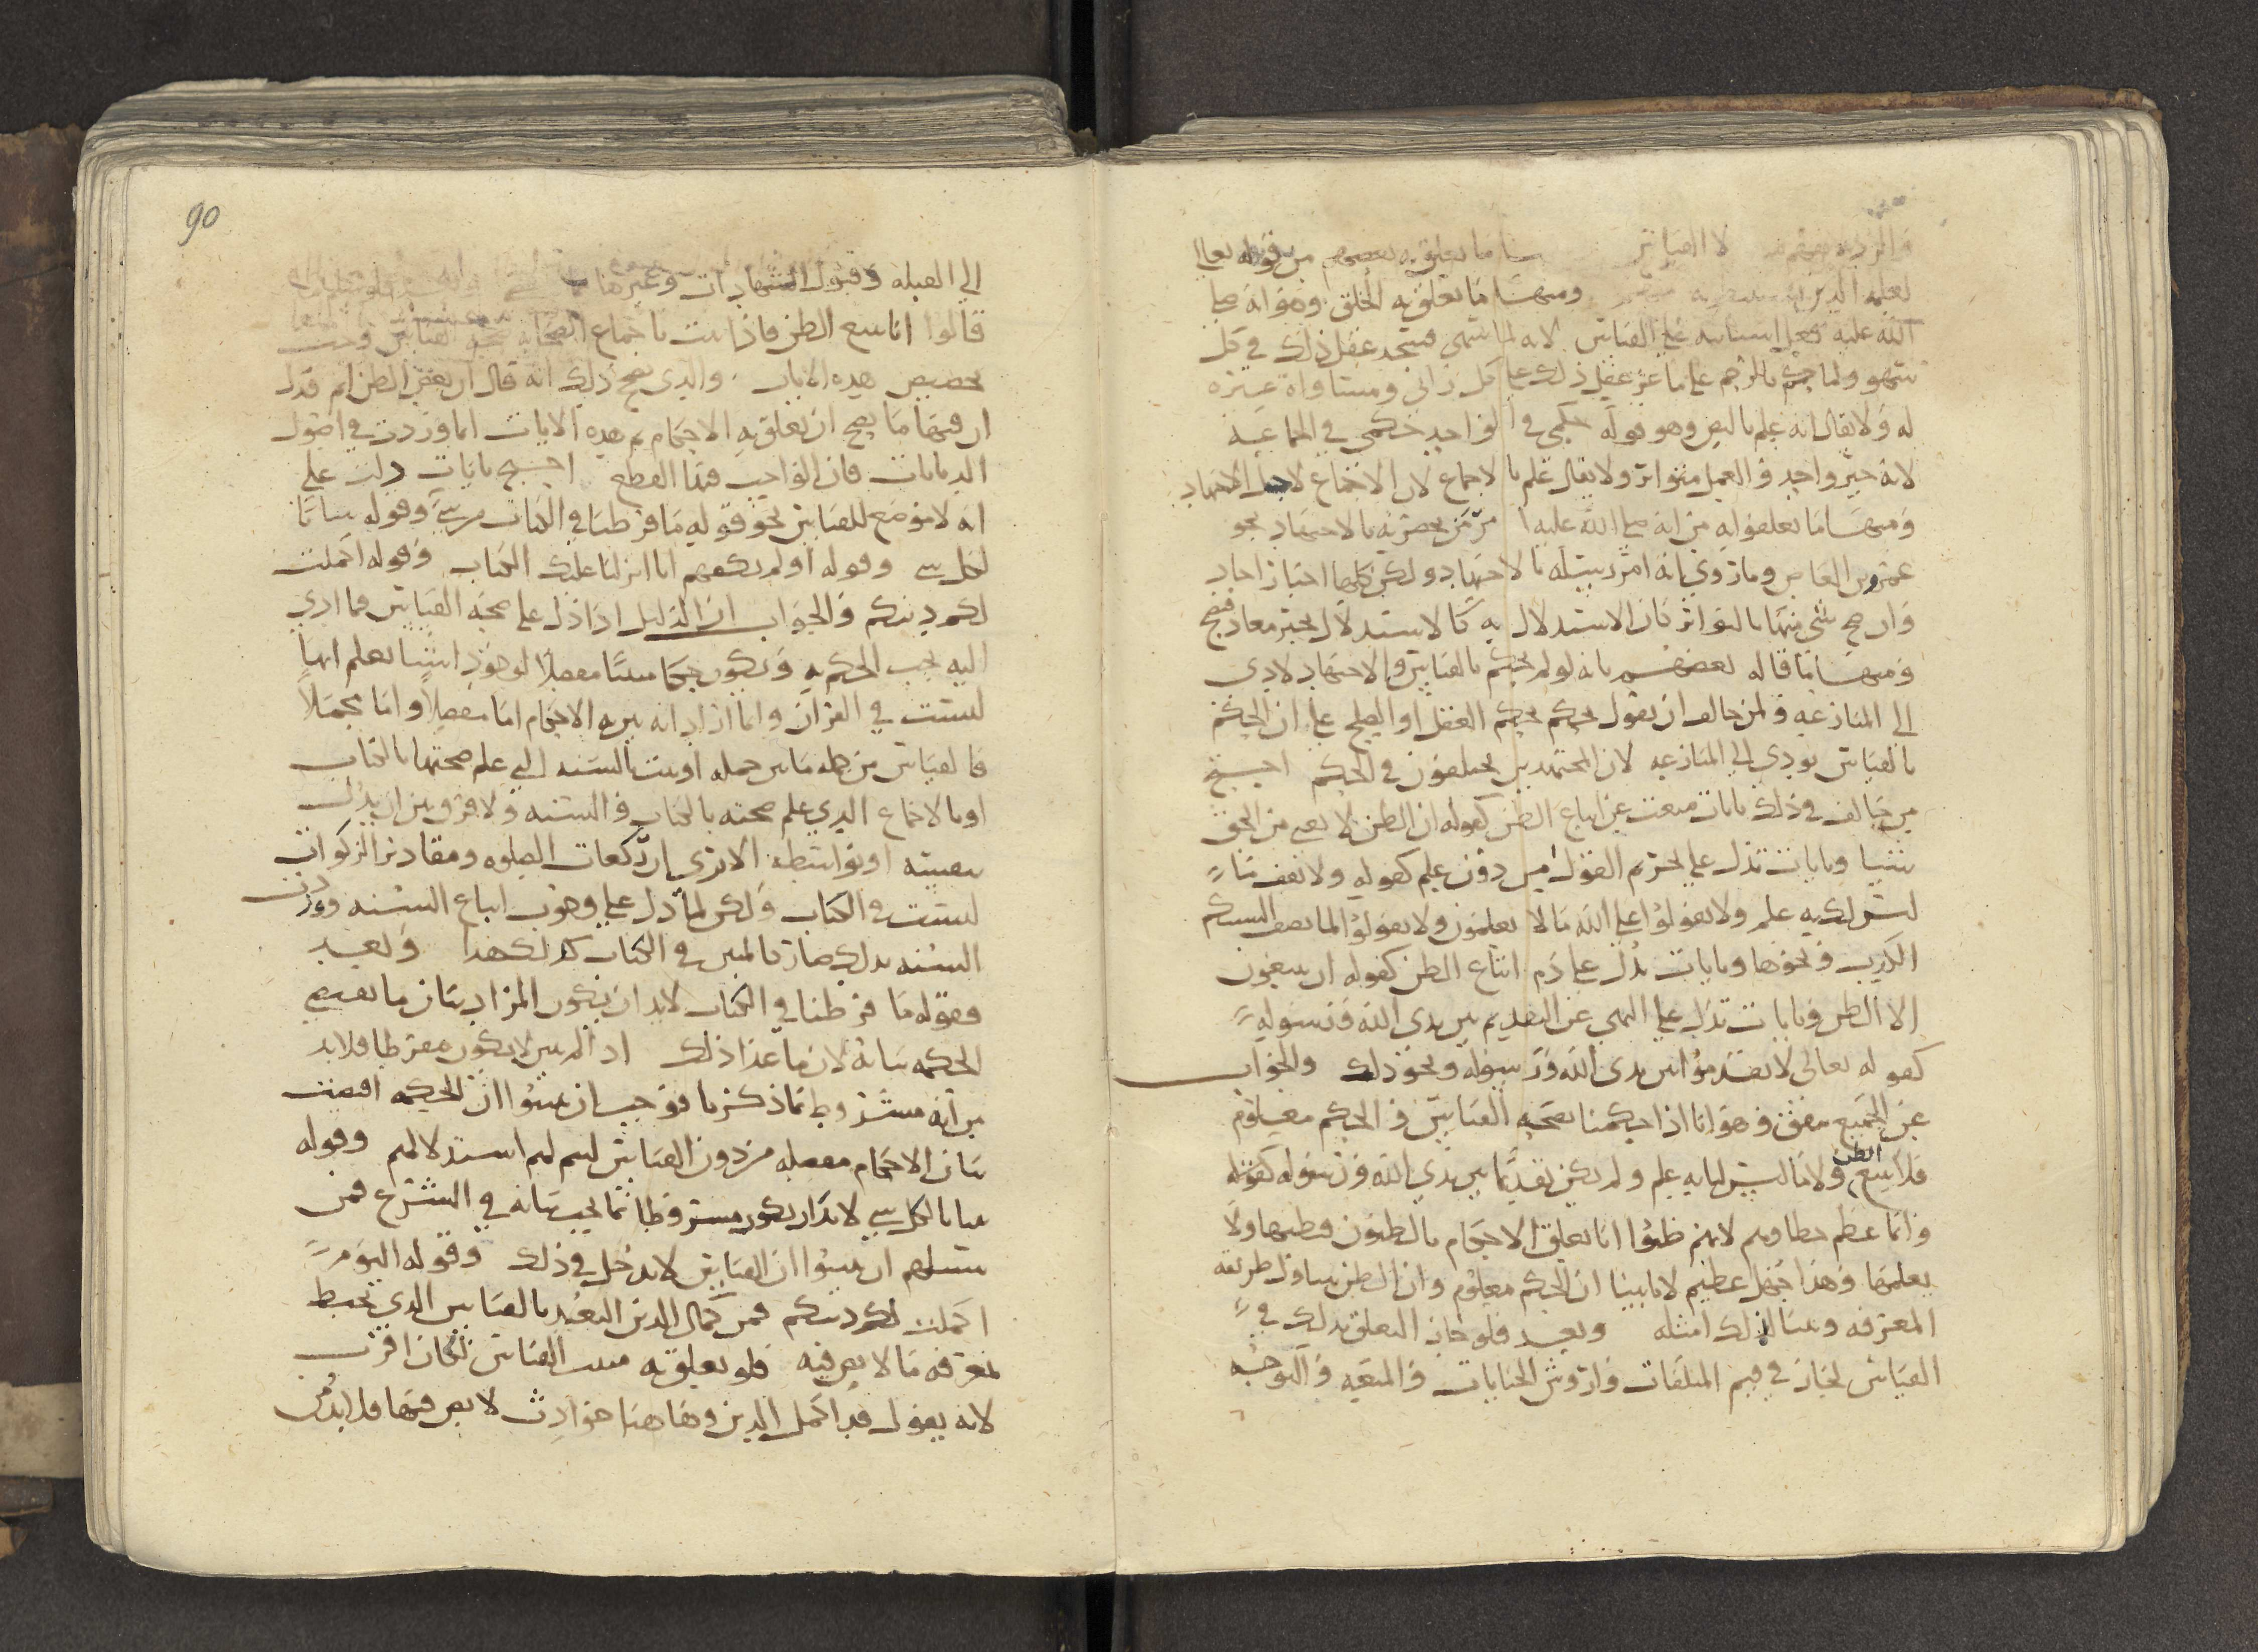 لا القياس ما تعلق به بعضهم من قوله تعالى
لعلمه الذين ومنها ما تعلق به الخلق وهو انه صلى
الله عليه على القياس لانه لما سهى فسجد عقل ذلك في كل
سهو ولما حكم بالرجم على ماعز عقل ذلك على كل زانى ومساواة غيره
له ولا يقال انه علم بالنص وهو قوله حكمي في الواحد حكمي في الجماعة
لانه خبر واحد والعمل متواتر ولا يقال علم بالاجماع لان الاجماع لاجل الاجتهاد
ومنها ما تعلقوا به من انه صلى الله عليه امر من بحضرته بالاجتهاد نحو
عمرو بن العاص وما روي انه امر بالاجتهاد ولكن كلها اخبار احاد
وان صح شي منها بالتواتر كان الاستدلال به كالاستدلال بخبر معاذ فصح
ومنها ما قاله بعضهم بانه لو لم يحكم بالقياس والاجتهاد لادى
الى المنازعه ولمن خالف ان يقول يحكم بحكم العقل او الصلح على ان الحكم
بالقياس يودي الى المنازعه لان المجتهدين يختلفون في الحكم احتج
من خالف في ذلك بايات منعت عن اتباع الظن كقوله ان الظن لا يغني من الحق
شيا وبايات تدل على تحريم القول من دون علم كقوله ولا تقف ما
ليس لك به علم ولا تقولوا على الله ما لا تعلمون ولا تقولوا لما تصف السنتكم
الكذب ونحوها وبايات تدل على ذم اتباع الظن كقوله ان يتبعون
الا الظن وبايات تدل على النهي عن التقديم بين يدي الله ورسوله
كقوله تعالى لا تقدموا بين يدى الله ورسوله ونحو ذلك والجواب
عن الجميع متفق وهو انا اذا حكمنا بصحة القياس فالحكم معلوم
فلا نتبع الظن ولا ما ليس لنا به علم ولم يكن تقديما بين يدي الله ورسوله كقوله
وانما عظم خطاوهم لانهم ظنوا انا نعلق الاحكام بالظنون فظنها ولا
يعلمها وهذا جهل عظيم لانا بينا ان الحكم معلوم وان الظن يتناول طريقه
المعرفه وبينا لذلك امثله وبعد فلو جاز التعلق بذلك في
القياس لجاز في قيم المتلفات واروش الجنايات والمتعه والتوجه
90
الى القبله وقبول الشهادات وغيرها
قالوا انا نتبع الظن فاذا ثبت باجماع الصحابه صحة القياس وجب
تخصيص هذه الايات والذي يصح ذلك انه قال ان بعض الظن اثم فدل
ان فيها ما يصح ان تعلق به الاحكام ثم هذه الايات انما وردت في اصول
الديانات فان الواجب فيها القطع احتج بايات دلت على
انه لا موضع للقياس نحو قوله ما فرطنا في الكتاب من شي وقوله بيانا
لكل شي وقوله اولم يكفهم انا انزلنا عليك الكتاب وقوله اكملت
لكم دينكم والجواب ان الدليل اذا دل على صحة القياس فما ادى
اليه يجب الحكم به ويكون حكما مبينا مفصلا لوجود اشيا نعلم انها
ليست في القران وانما اراد انه بين به الاحكام اما مفصلا واما مجملا
فالقياس من جملة ما بين جمله او بينت بالسنه التي علم صحتها بالكتاب
او بالاجماع الذي علم صحته بالكتاب والسنه ولا فرق بين ان يدل
بنفسه او بواسطه الا ترى ان ركعات الصلوه ومقادير الزكوات
ليست في الكتاب ولكن لما دل على وجوب اتباع السنه ووردت
السنه بذلك صار كالمبين في الكتاب كذلك هذا وبعد
فقوله ما فرطنا في الكتاب لا بد ان يكون المراد بيان ما تقتضي
الحكمه بيانه لان ما عدا ذلك اذا لم يبين لا يكون مفرطا فلا بد
من انه مشروط بما ذكرنا فوجب ان يبينوا ان الحكمه اقتضت
بيان الاحكام مفصله من دون القياس ليتم لهم استدلالهم وقوله
بيانا لكل شي لا بد ان يكون مشروطا بما يجب بيانه في الشرع فمن
يسلم ان يبينوا ان القياس لا يدخل في ذلك وقوله اليوم
اكملت لكم دينكم فمن كمال الدين التعبد بالقياس الذي يحيط
بمعرفه ما لا يعرفه فلو تعلق به مثبت القياس لكان اقرب
لانه يقول قد اكمل الدين وها هنا حوادث لا يعرفها فلا بد من